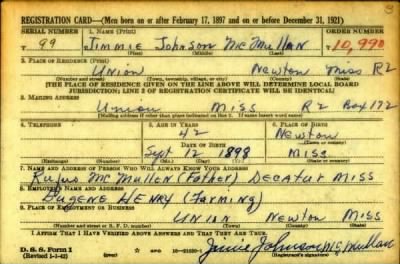 REGISTRATION CARD—(Men born on or after February 17, 1897 and on or before December 31, 1921)
SERIAL NUMBER 1. NAME (Print) ORDER NUMBER
T 99 Jimmie Johnson McMullan 10,990
(First) (Middle) (Last)
2. PLACE OF RESIDENCE (Print)
Union Newton Miss R2
(Number and street) (Town, township, village, or city) (County) (State)
[THE PLACE OF RESIDENCE GIVEN ON THE LINE ABOVE WILL DETERMINE LOCAL BOARD
JURISDICTION; LINE 2 OF REGISTRATION CERTIFICATE WILL BE IDENTICAL]
3. MAILING ADDRESS
Union Miss R2 Box 172
[Mailing address if other than place indicated on line 2. If same insert word same]
4. TELEPHONE 5. AGE IN YEARS 6. PLACE OF BIRTH
42 Newton
DATE OF BIRTH (Town or county)
Sept 12 1899 Miss
(Exchange) (Number) (Mo.) (Day) (Yr.) (State or country)
7. NAME AND ADDRESS OF PERSON WHO WILL ALWAYS KNOW YOUR ADDRESS
Rufus McMullen (Father) Decatur Miss
8. EMPLOYER'S NAME AND ADDRESS
Eugene Henry (Farming)
9. PLACE OF EMPLOYMENT OR BUSINESS
Union Newton Miss
(Number and street or R. F. D. number) (Town) (County) (State)
I AFFIRM THAT I HAVE VERIFIED ABOVE ANSWERS AND THAT THEY ARE TRUE.
D. S. S. Form 1
(Revised 1-1-42) (over)
Jimmie Johnson McMullan
(Registrant's signature)